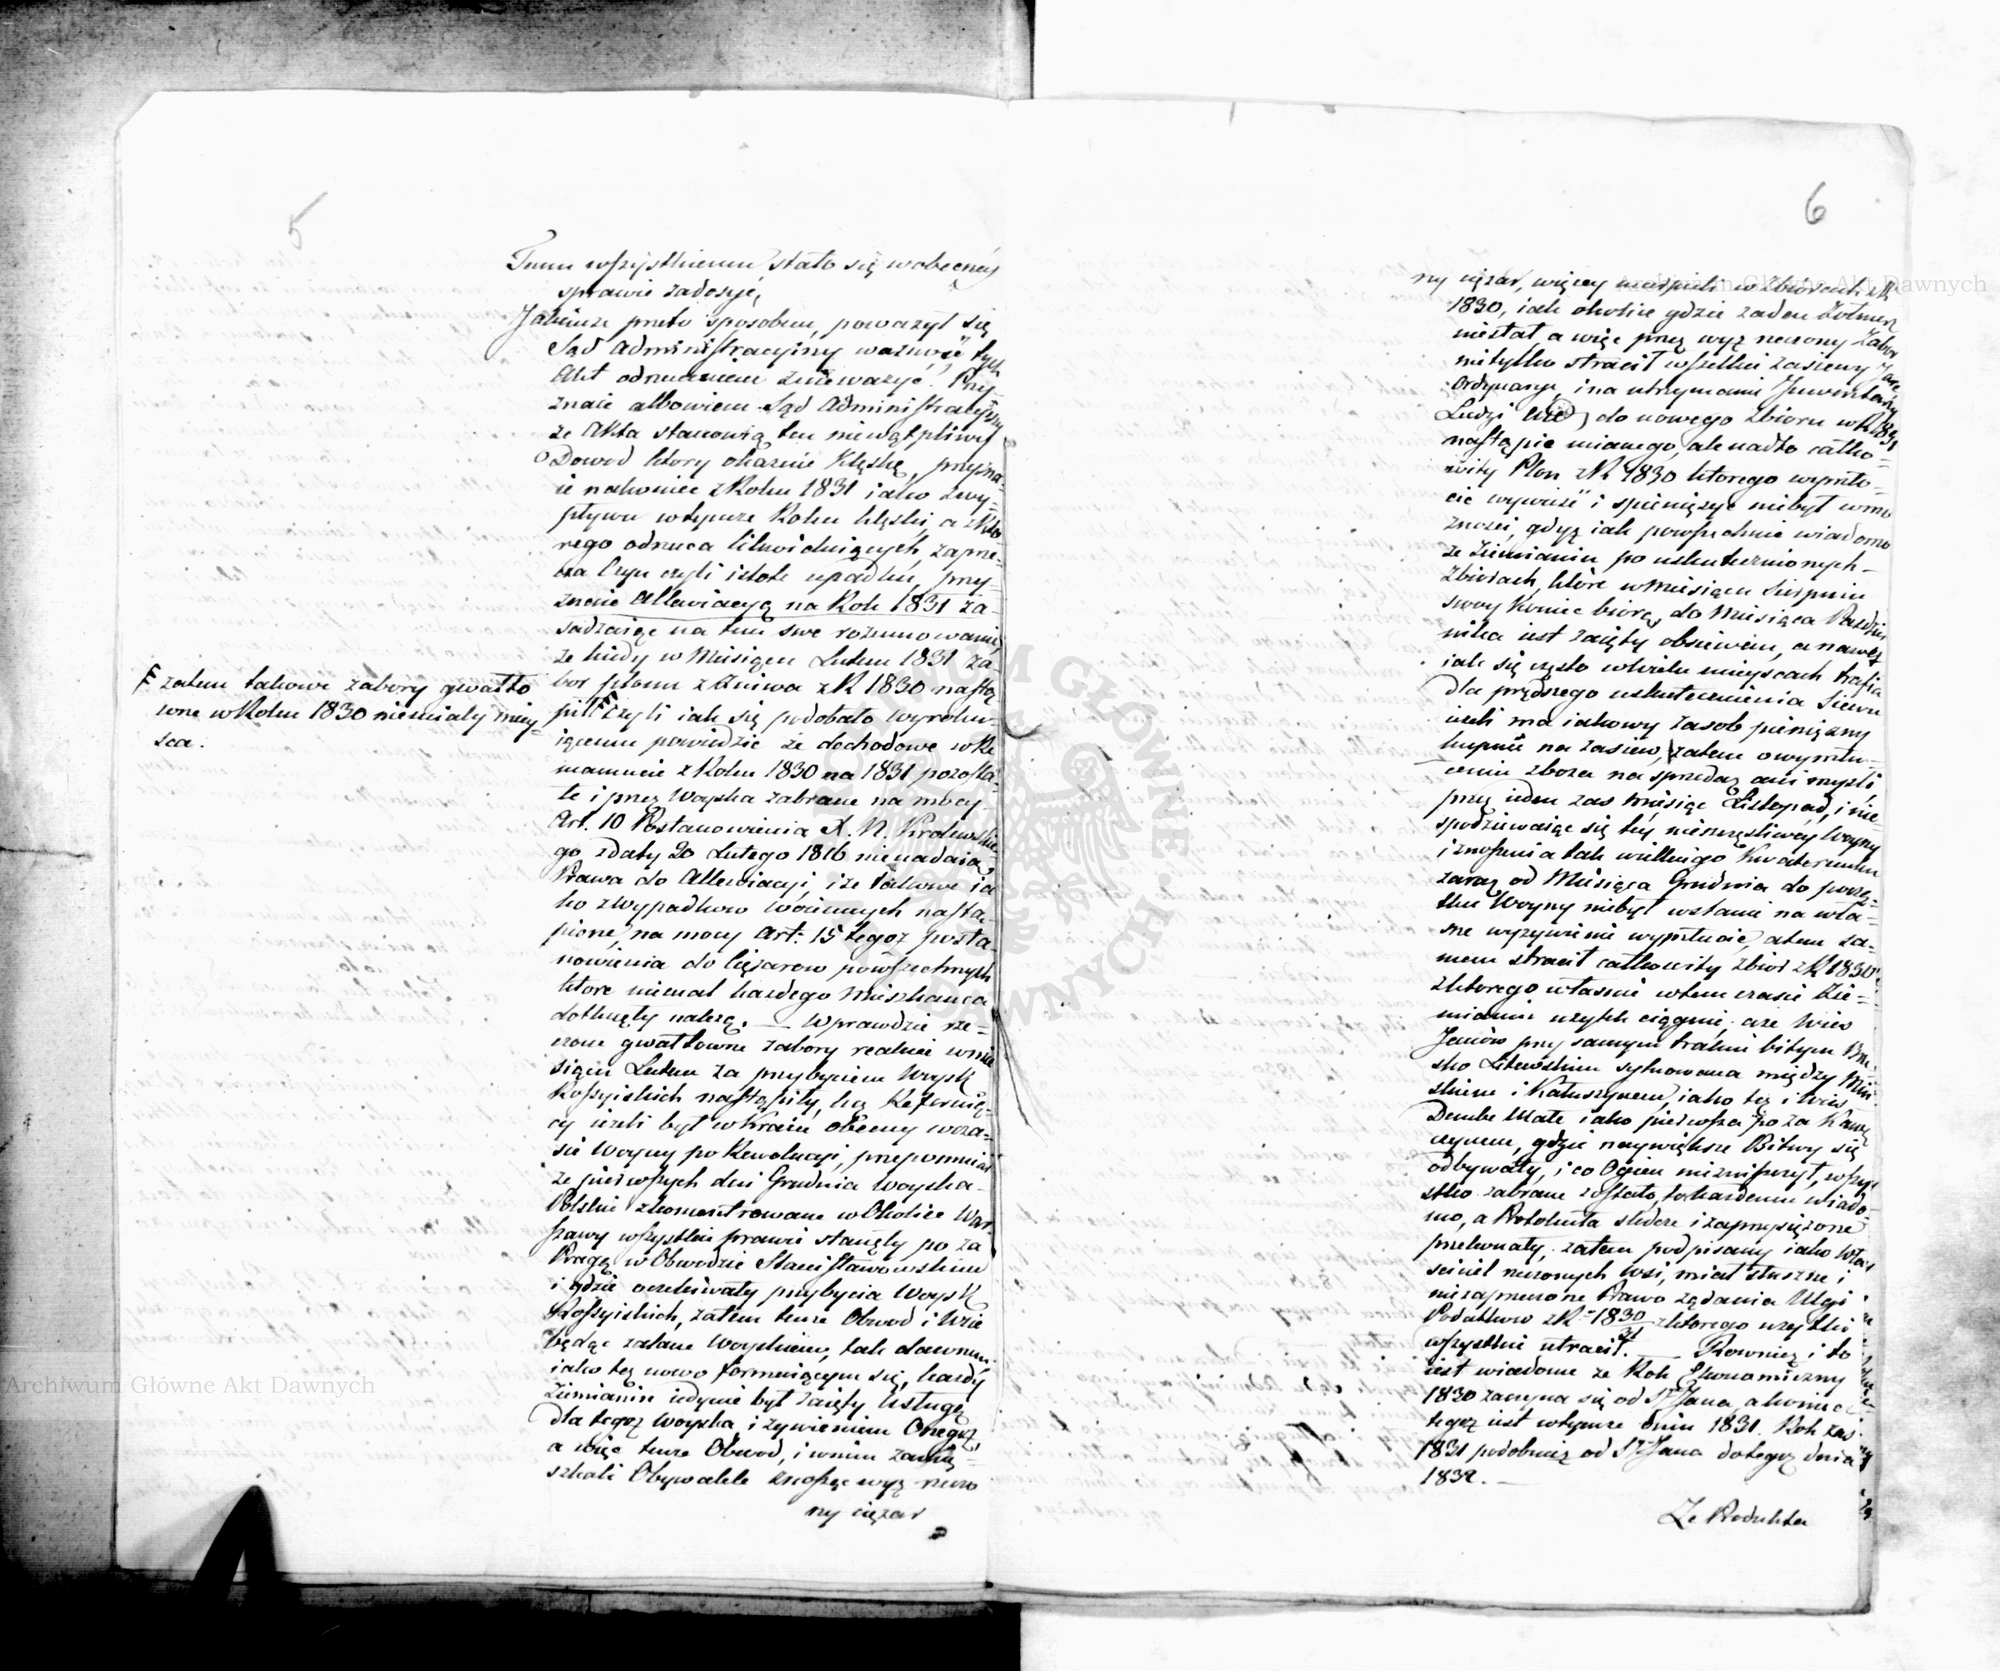 5
Temu wszystkiemu stało się w obecney
sprawie zadosyć,
Jakimże przeto sposobem, poważył się
Sąd Administracyiny ważność tych
Akt odrzuceniem znieważyć. Przy
znaie albowiem Sąd Administracyiny
że Akta stanowią ten niewątpliwy
Dowod ktory okaznie Klęskę, przyzna-
ie nakoniec z Roku 1831 iako zwy-
pływu w tymże Roku klęski, a z Kto
rego odrzuca likwiduiących, zaprze-
cza Czyn czyli istotę upadku, przy-
znaie Allewiacyą na Rok 1831 za-
sadzaiąc na tem swe rozumowanie,
że kiedy w Miesiącu Lutem 1831 za-
bor plonu z żniwa z R 1830 nastą
pił czyli iak się podobało wyroku-
iącemu powiedzic że dochodowe w Re
manencie z Roku 1830 na 1831 pozosta-
łe i przez Woyska zabrane na mocy
Art. 10 Postanowienia X. N. Krolewskie
go z daty 20 Lutego 1816 nie nadaią
Prawa do Allewiacyi, i że takowe ia
ko z Wypadkow woiennych nastą-
pione, na mocy Art: 15 tegoż posta-
nowienia do Ciężarow powszechnych
ktore niemal każdego Mieszkańca
dotknęły należą. — Wprawdzie rze-
czone gwałtowne zabory realnie w mie
siącu Lutem za przybyciem Woysk
Rossyiskich nastąpiły, lecz Referuią-
cy ieżeli był w Kraiu obecny w cza-
sie Woyny po Rewolucyi, przepomniał
że pierwszych dni Grudnia Woyska
Polskie zkoncentrowane w Okolice War
szawy wszystkie prawie stanęły po za
Pragą w Obwodzie Stanisławowskim
i gdzie oczekiwały przybycia Woysk
Rossyiskich, zatem tenże Obwod i Wsie
będąc zalane Woyskiem, tak dawnem
iako też nowo formuiącym się, każdy
Ziemianin iedynie był zaięty usługą
dla tegoż Woyska, i żywieniem Onegoż,
a więc tenże Obwod, i w nim zamie-
szkali Obywatele znosząc wyż rzeczo
ny ciężar
zatem takowe zabory gwałto
wne w Roku 1830 nie miały miey-
sca.
6
ny ciężar, więcey ucierpieli w zbiorach z R
1830, iak okolice gdzie żaden Żołnierz
nie stał, a więc przez wyż rzeczony Zabor
nietylko stracił wszelki zasiewy Jare
Ordynaryę, i na utrzymanie Jnwentarzy
Ludzi do nowego Zbioru w R 1831
nastąpić mianego, ale nadto całko-
wity Plon z R 1830 ktorego wymło-
cić wywieźć i spieniężyć niebył w mo
żności, gdyż iak powszechnie wiadomo
że Ziemianin po uskutecznionych
Zbiorach, ktore w Miesiącu Sierpniu
swoy koniec biorą, do Miesiąca Paździer
nika iest zaięty obsiewem, a nawet
iak się często w wielu mieyscach trafia
dla prędszego uskutecznienia Siewu
ieżeli ma iakowy zasob pieniężny
kupuie na zasiew, zatem o wymłu-
ceniu zboża na sprzedaż ani myśli
przez ieden zaś miesiąc Listopad, i nie-
spodziewaiąc się tey nieszczęśliwey Woyny
i znoszenia tak wielkiego Kwaterunku
zaraz od Miesiąca Grudnia do począ-
tku Woyny niebył w stanie na wła-
sne wyżywienie wymłucić, a tem sa-
mem stracił całkowity Zbior z R 1830
z ktorego właśnie w tem czasie Zie-
mianin użytek ciągnie. a że Wieś
Janów przy samym trakcie bitym Brze
sko Litewskim sytuowana między Miń
skiem i Kałuszynem, iako też i Wieś
Dembe Małe iako pierwsza po za Kału
szynem, gdzie naywiększe Bitwy się
odbywały, i co Ogień niezniszczył, wszy
stko zabrane zostało, to każdemu wiado-
mo, a Protokuła śledcze i zaprzysiężone
przekonały, zatem podpisany iako Wła
ściciel rzeczonych Wsi, miał słuszne i
niezaprzeczone Prawo żądania Ulgi
Podatkow z R 1830/31 z ktorego użytki
wszystkie utracił. — Rownież i to
iest wiadome że Rok Ekonomiczny
1830 zaczyna się od St Jana, a koniec
tegoż iest w tymże dniu 1831. Rok zaś
1831 podobnież od St Jana do tegoż dnia
1832. —
Ze Produkta
Archiwum Główne Akt Dawnych
Archiwum Główne Akt Dawnych
ARCHIWUM GŁÓWNE AKT DAWNYCH